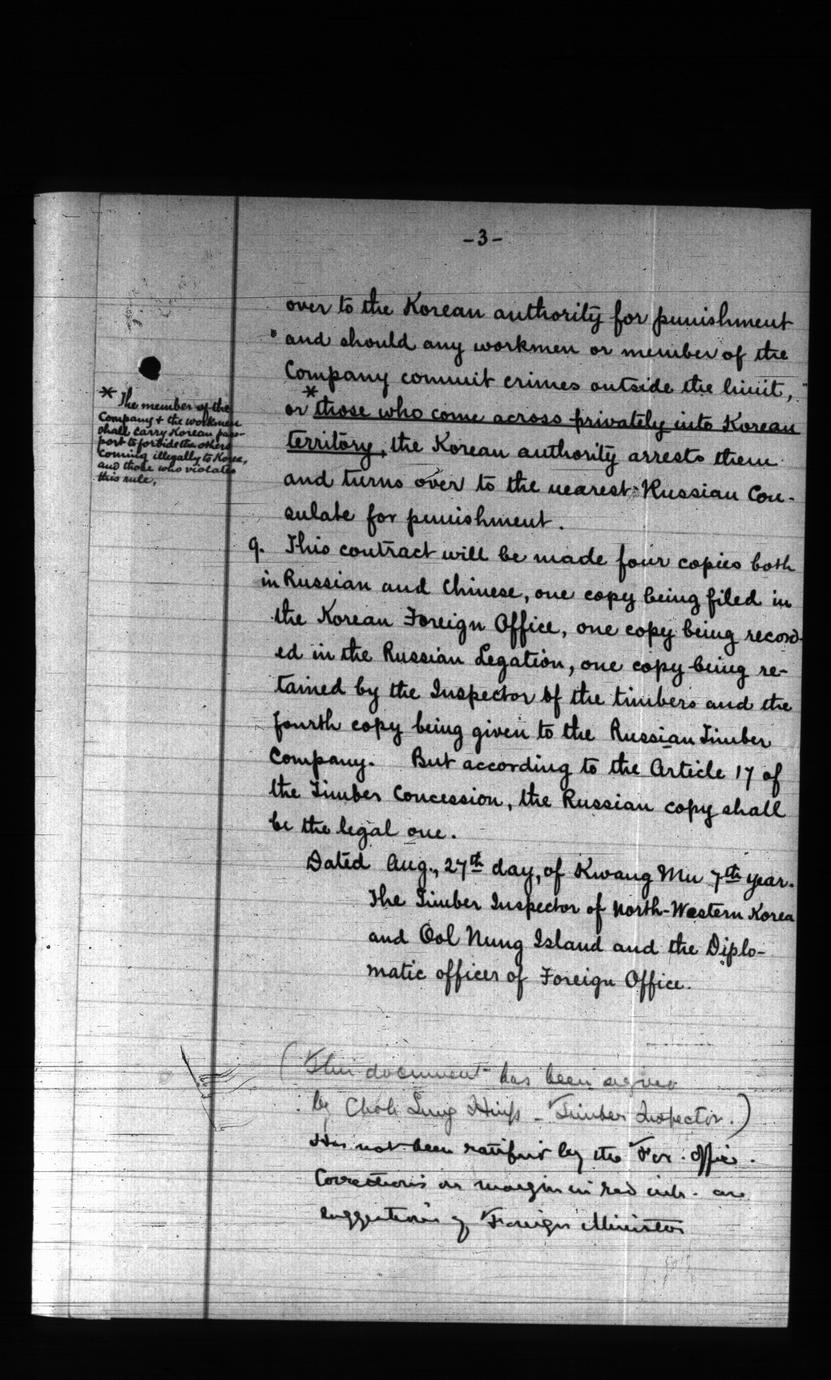 -3-
over to the Korean authority for punishment
"and should any workmen or member of the
Company commit crimes outside the limit,"
or * those who come across privately into Korean
territory, the Korean authority arrests them
and turns over to the nearest Russian Con-
sulate for punishment.
* The member of the
Company & the workmen
shall carry Korean pass-
port to forbid the others
coming illegally to Korea,
and those who violates
this rule,
9. This contract will be made four copies both
in Russian and Chinese, one copy being filed in
the Korean Foreign Office, one copy being record-
ed in the Russian Legation, one copy being re-
tained by the Inspector of the timbers and the
fourth copy being given to the Russian Timber
Company. But according to the Article 17 of
the Timber Concession, the Russian copy shall
be the legal one.
Dated Aug., 27th day, of Kwang Mu 7th year.
The Timber Inspector of North-Western Korea
and Ool Nung Island and the Diplo-
matic officers of Foreign Office.
(This document has been signed
by Choh Sung Hiup - Timber Inspector.)
Has not been ratified by the For. Office.
Corrections on margin in red ink are
suggestions of Foreign Minister